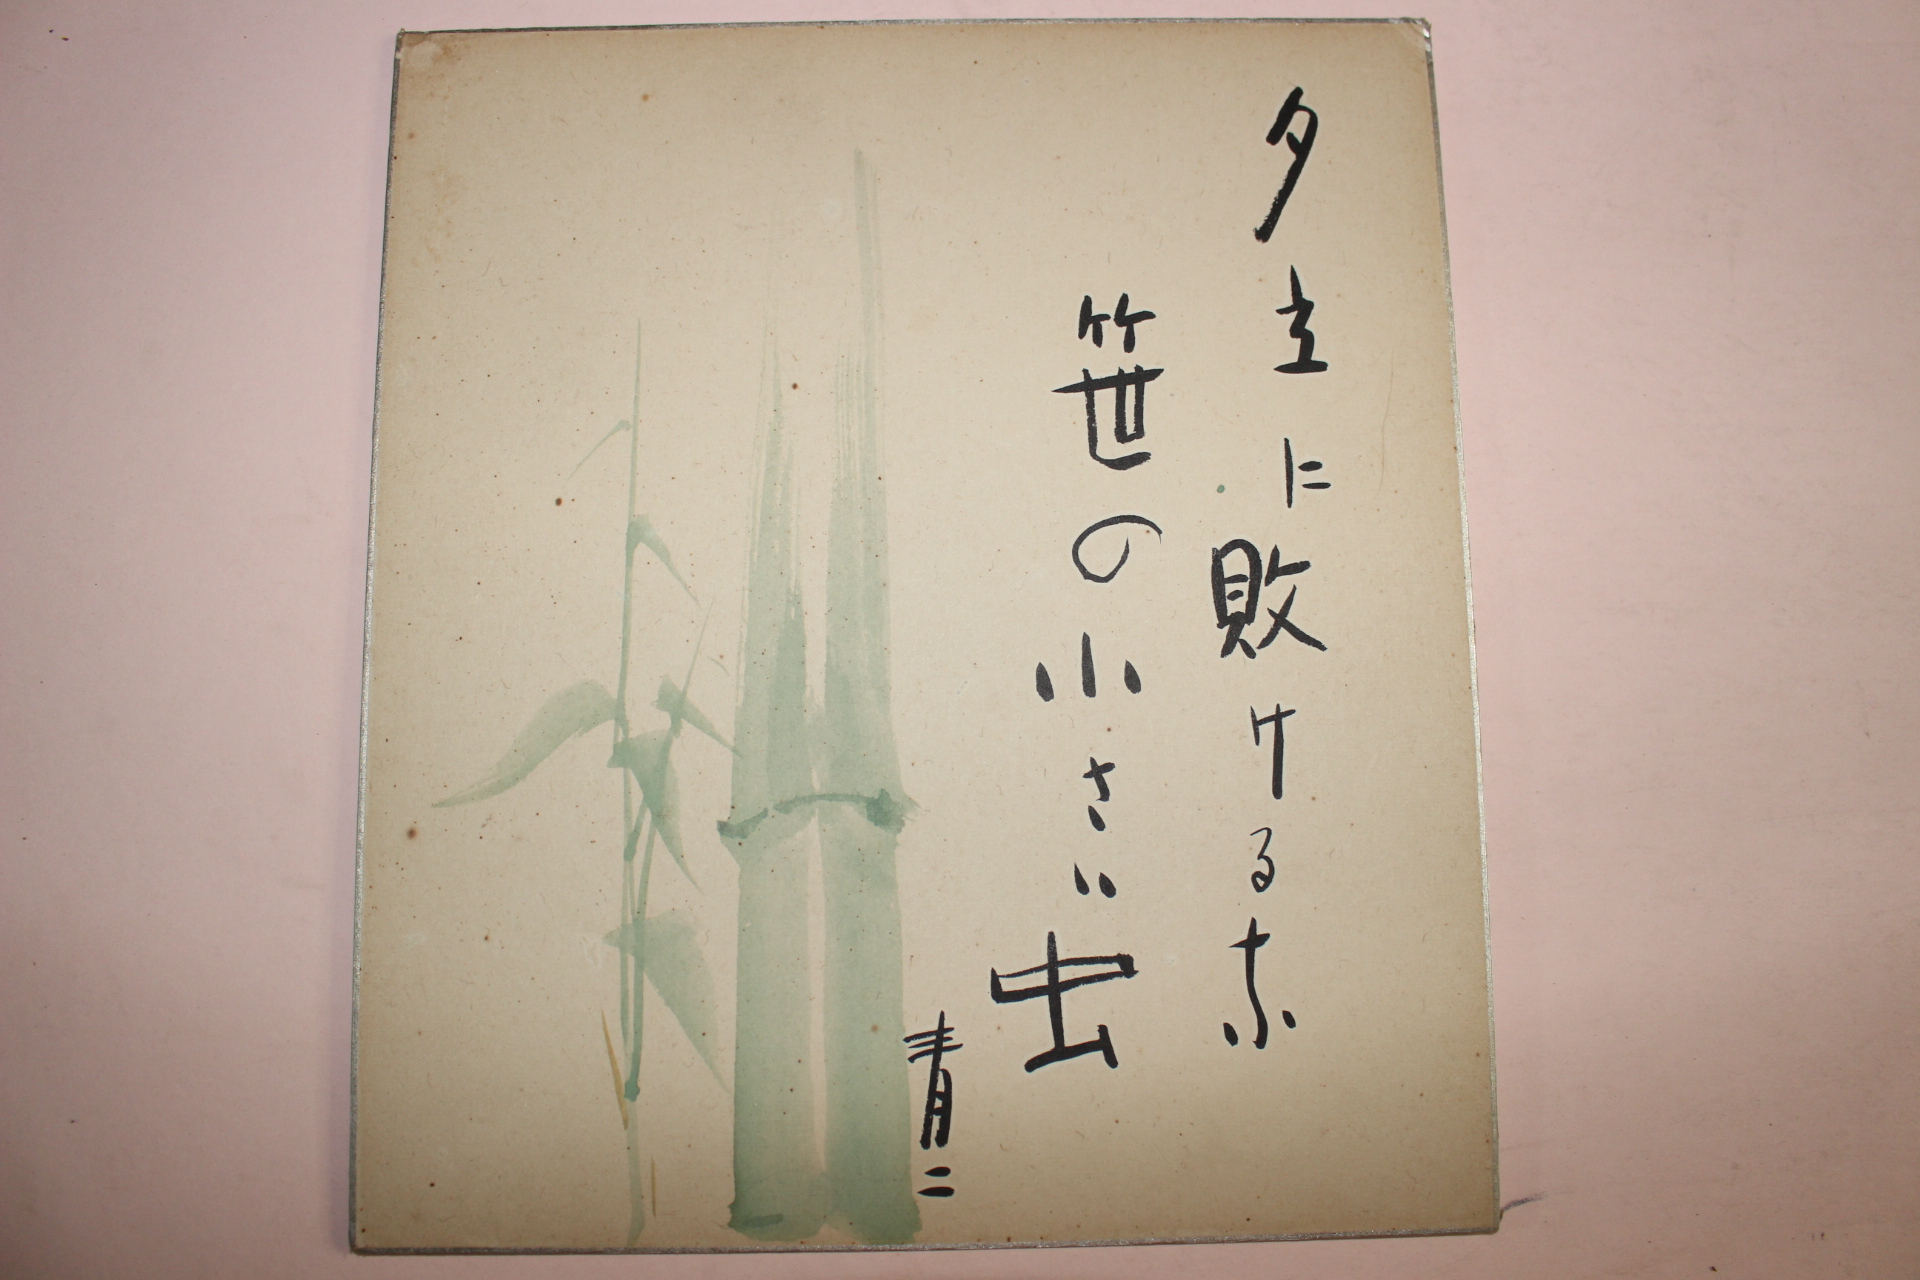 夕立に敗ける奈
笹の小さい虫
青二